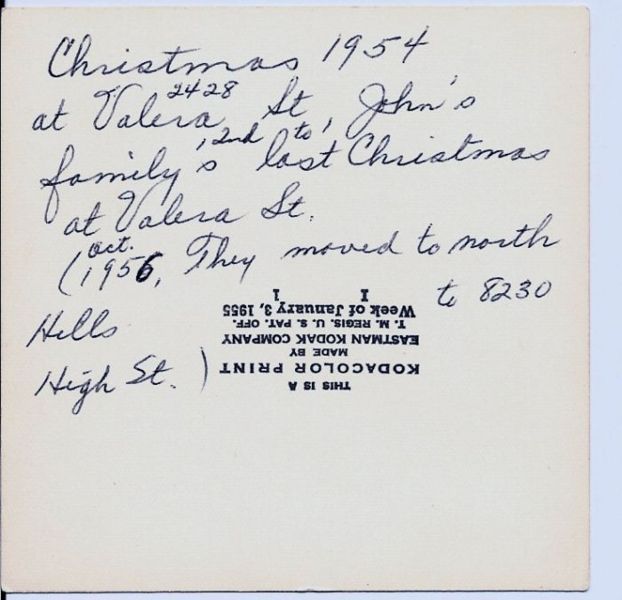 Christmas 1954
at Valera 2428 St, John's
family's, 2nd to, last Christmas
at Valera St.
(Oct. 1956, They moved to north
Hills to 8230
High St.)
THIS IS A
KODACOLOR PRINT
MADE BY
EASTMAN KODAK COMPANY
T. M. REGIS. U. S. PAT. OFF.
Week of January 3, 1955
1 I